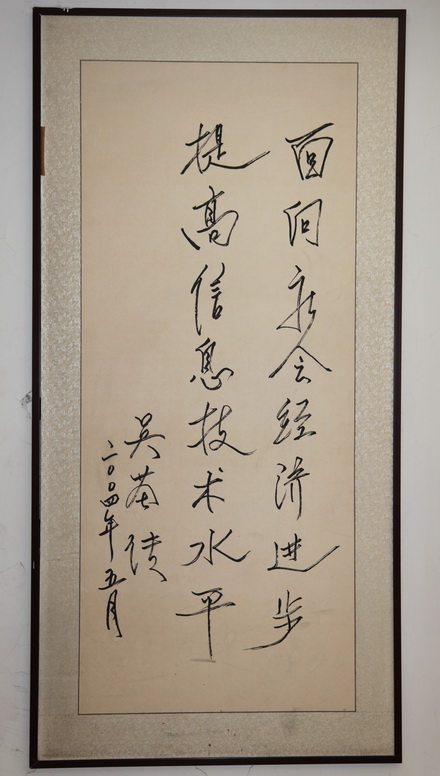 面向社会经济进步
提高信息技术水平
吴基传
二〇〇四年五月